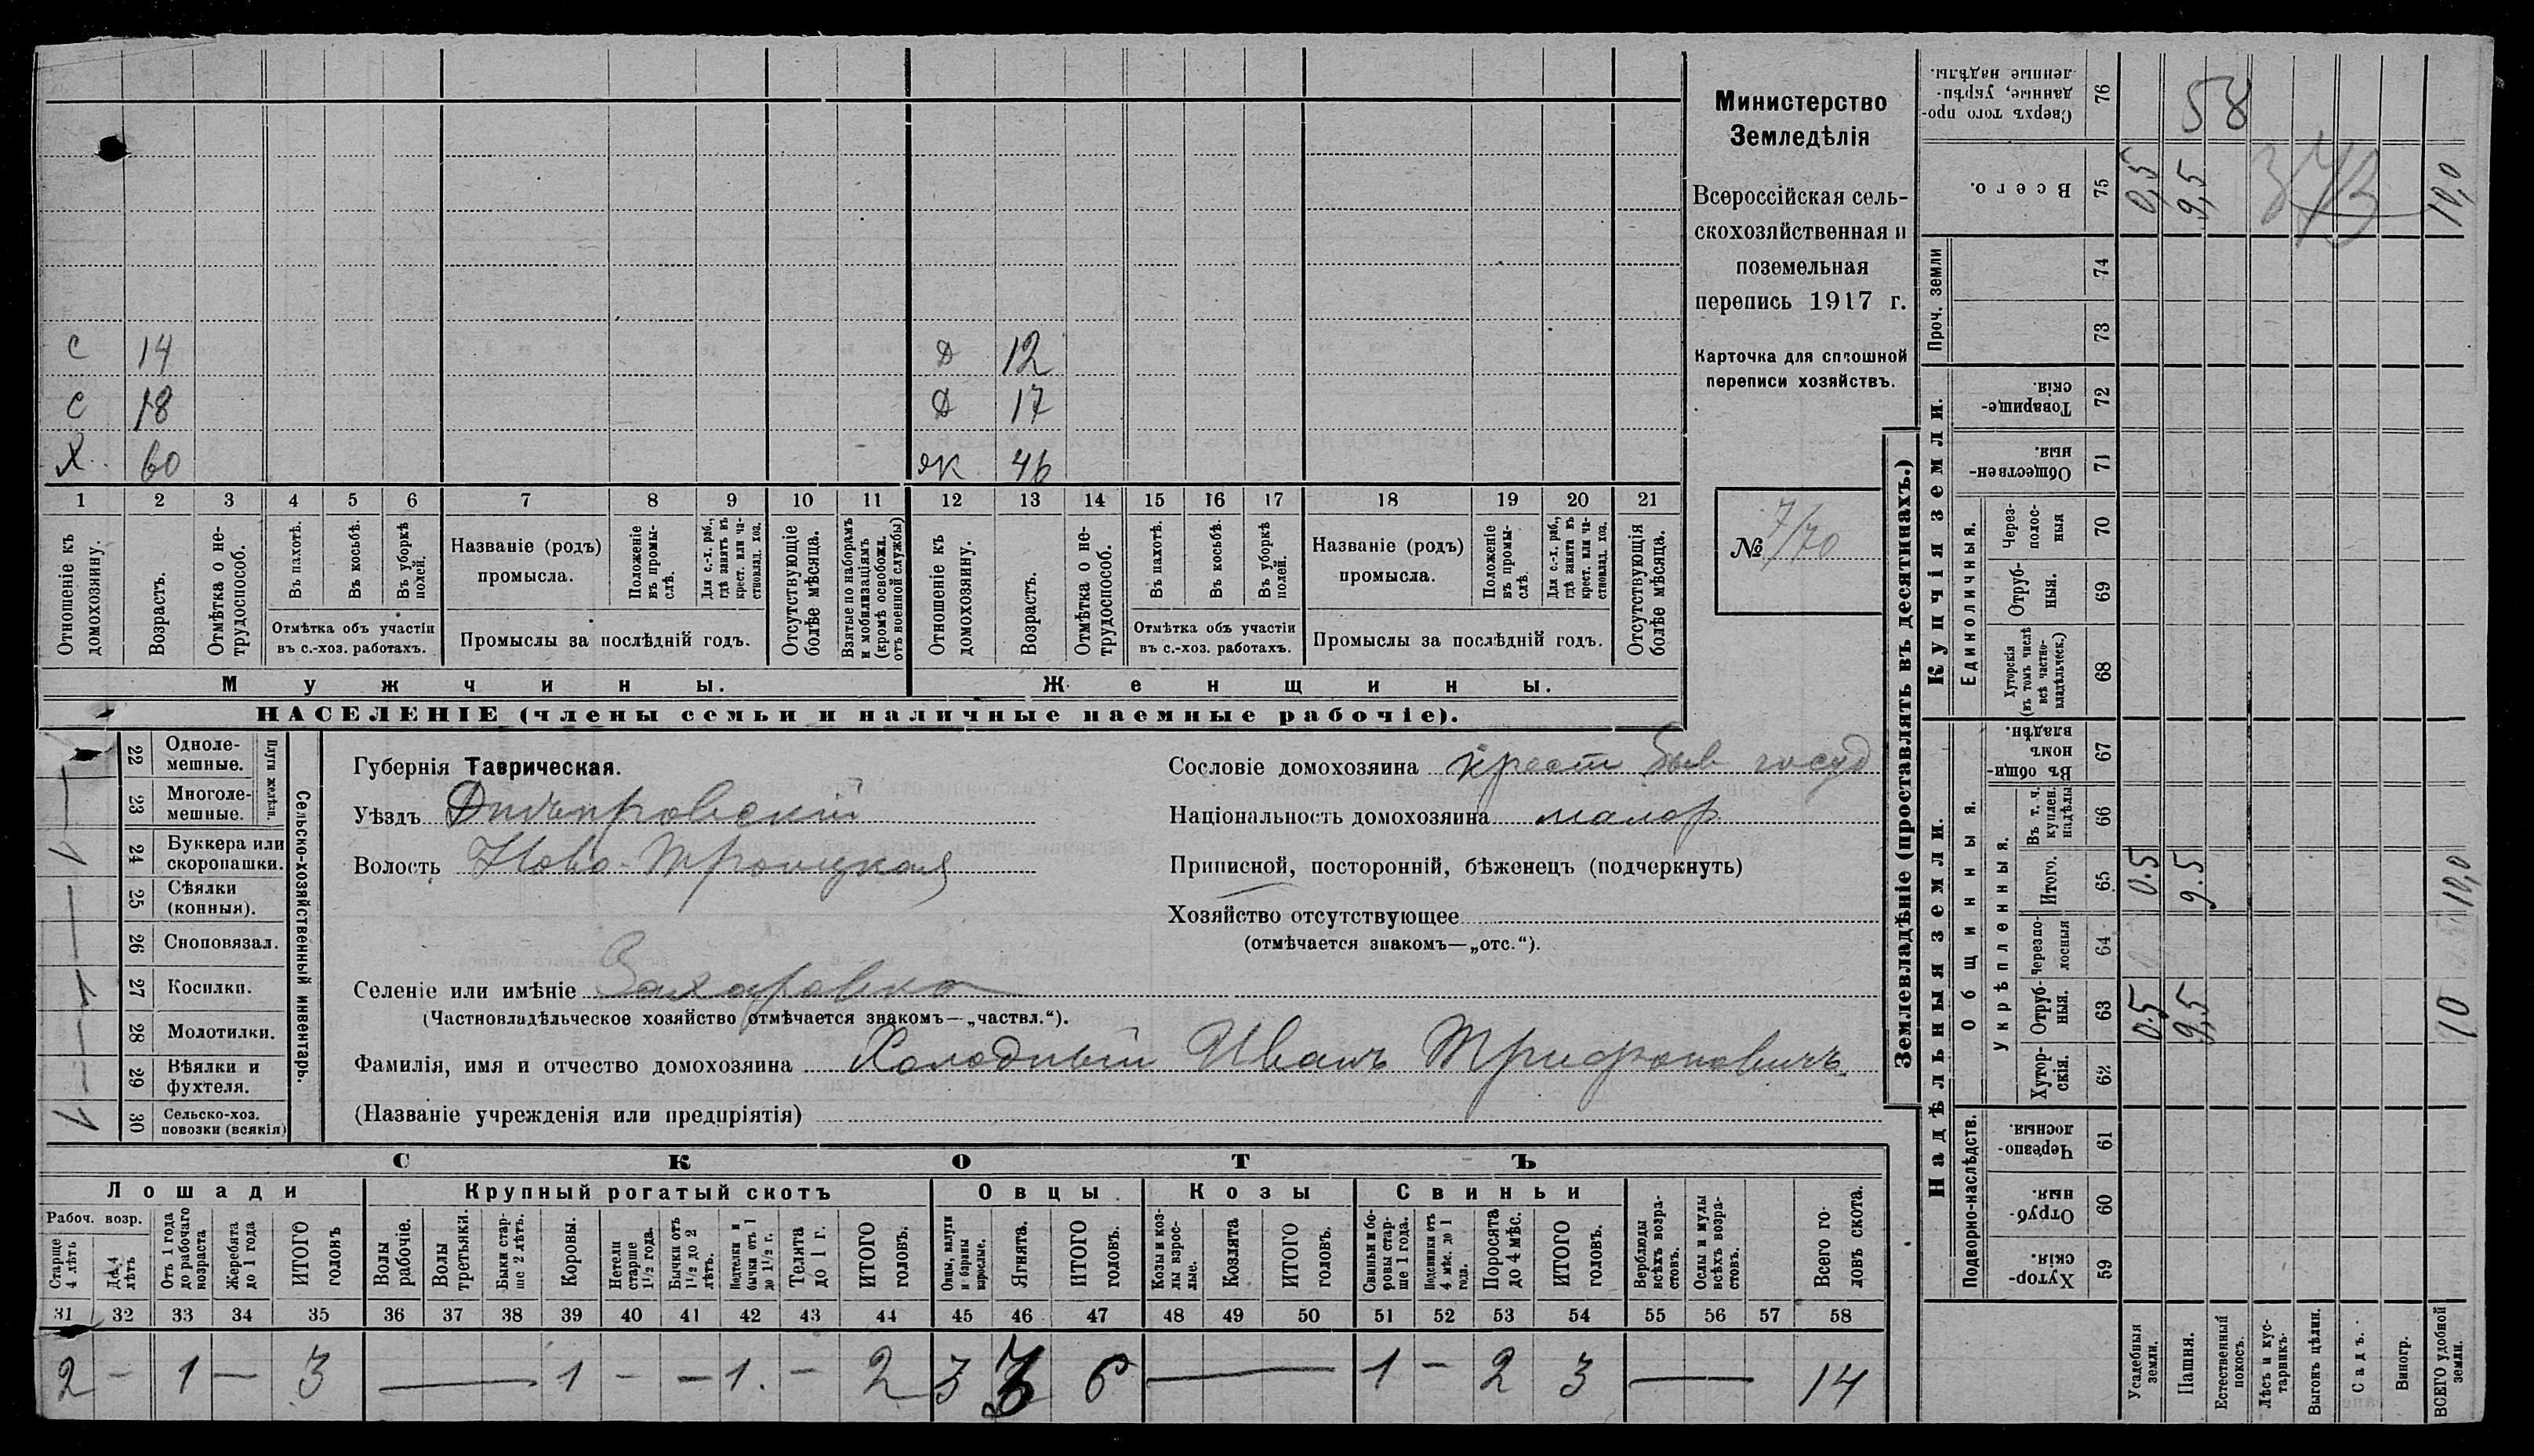 С 14 Д 12
С 18 Д 17
Х. 60 ж 46
1 2 3 4 5 6 7 8 9 10 11 12 13 14 15 16 17 18 19 20 21
Отношеніе къ домохозяину.
Возрастъ.
Отмѣтка о не-трудоспособ.
Въ пахотѣ.
Въ косьбѣ.
Въ уборкѣ полей.
Отмѣтка объ участіи
въ с.-хоз. работахъ.
Названіе (родъ)
промысла.
Положеніе въ промы-слѣ.
Для с.-х. раб., гдѣ занятъ въ крест. или ча-стновлад. хоз.
Промыслы за послѣдній годъ.
Отсутствующіе болѣе мѣсяца.
Взятые по наборамъ и мобилизаціямъ (кромѣ освобожд. отъ военной службы)
Отношеніе къ домохозяину.
Возрастъ.
Отмѣтка о не-трудоспособ.
Въ пахотѣ.
Въ косьбѣ.
Въ уборкѣ полей.
Отмѣтка объ участіи
въ с.-хоз. работахъ.
Названіе (родъ)
промысла.
Положеніе въ промы-слѣ.
Для с.-х. раб., гдѣ занята въ крест. или ча-стновлад. хоз.
Промыслы за послѣдній годъ.
Отсутствующія болѣе мѣсяца.
Мужчины. Женщины.
НАСЕЛЕНІЕ (члены семьи и наличные наемные рабочіе).
Министерство
Земледѣлія
Всероссійская сель-
скохозяйственная и
поземельная
перепись 1917 г.
Карточка для сплошной
переписи хозяйствъ.
№ 7/70
Сельско-хозяйственный инвентарь.
Плуги желѣзн.
22 Одноле-мешные.
23 Многоле-мешные.
24 Буккера или скоропашки.
25 Сѣялки (конныя).
26 Сноповязал.
27 Косилки.
28 Молотилки.
29 Вѣялки и фухтеля.
30 Сельско-хоз. повозки (всякія)
1 — 1 — 1 — 1 — 1
Губернія Таврическая.
Уѣздъ Днѣпровскій
Волость Ново-Троицкая
Селеніе или имѣніе Захаровка
(Частновладѣльческое хозяйство отмѣчается знакомъ—„частвл.“).
Фамилія, имя и отчество домохозяина Холодный Иванъ Трифоновичъ
(Названіе учрежденія или предпріятія)
Сословіе домохозяина крест быв госуд
Національность домохозяина малор
Приписной, посторонній, бѣженецъ (подчеркнуть)
Хозяйство отсутствующее
(отмѣчается знакомъ—„отс.“).
СКОТЪ
Лошади Крупный рогатый скотъ Овцы. Козы Свиньи
Рабоч. возр.
Старше 4 лѣтъ
До 4 лѣтъ
Отъ 1 года до рабочаго возраста
Жеребята до 1 года
ИТОГО головъ
Волы рабочіе.
Волы третьяки.
Быки стар-ше 2 лѣтъ.
Коровы.
Нетели старше 1½ года.
Бычки отъ 1½ до 2 лѣтъ.
Подтелки и бычки отъ 1 до 1½ г.
Телята до 1 г.
ИТОГО головъ.
Овцы, валухи и бараны взрослые.
Ягнята.
ИТОГО головъ.
Козы и коз-лы взрос-лые.
Козлята
ИТОГО головъ.
Свиньи и бо-ровы стар-ше 1 года.
Подсвинки отъ 4 мѣс. до 1 года.
Поросята до 4 мѣс.
ИТОГО головъ.
Верблюды всѣхъ возра-стовъ.
Ослы и мулы всѣхъ возра-стовъ.
Всего го-ловъ скота.
31 32 33 34 35 36 37 38 39 40 41 42 43 44 45 46 47 48 49 50 51 52 53 54 55 56 57 58
2 — 1 — 3 — 1 — — 1. — 2 3 3 6 — 1 — 2 3 — 14
Землевладѣніе (проставлять въ десятинахъ.)
Надѣльныя земли. Купчія земли.
Проч. земли
Подворно-наслѣдств.
Общинныя.
Укрѣпленныя.
Единоличныя.
Хутор-скія. 59
Отруб-ныя. 60
Черезпо-лосныя. 61
Хутор-скія. 62
Отруб-ныя. 63
Черезпо-лосныя 64
Итого. 65
Въ т. ч. куплен. надѣлы 66
Въ общи-номъ владѣн. 67
Хуторскія (въ томъ числѣ всѣ частно-владѣльческ.) 68
Отруб-ныя. 69
Через-полос-ныя 70
Обществен-ныя. 71
Товарище-скія. 72
73
74
Всего. 75
Сверхъ того про-данные, укрѣп-ленные надѣлы. 76
Усадебныя земли.
Пашня.
Естественный покосъ.
Лѣсъ и кус-тарникъ.
Выгонъ цѣлин.
Садъ.
Виногр.
ВСЕГО удобной земли.
0.5 9,5 10
0.5 9.5 10,0
0,5 9,5 10,0
58
373